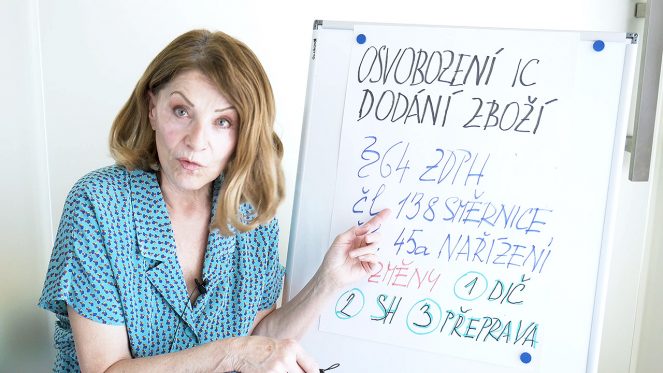 OSVOBOZENÍ IC
DODÁNÍ ZBOŽÍ
§ 64 ZDPH
čl. 138 SMĚRNICE
45a NAŘÍZENÍ
ZMĚNY ① DIČ
② SH ③ PŘEPRAVA